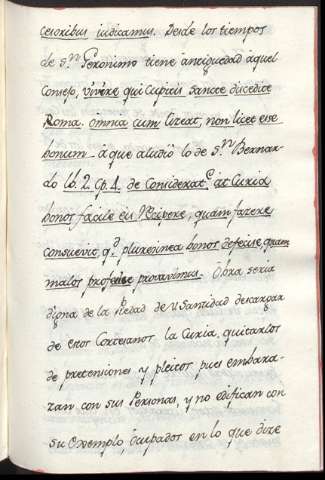 cesoribus iudicamus. Desde los tiempos
de S.n Geronimo tiene antiguedad aquel
Consejo, vivere qui cupitis sancte discedite
Roma. omnia cum liceat, non licet esse
bonum. a que aludiò lo de S.n Bernar-
do lib. 2. Cp. 4. de Considerat.e at Curia
bonos facile recipere, quam facere
consuevit, q.d plures in ea bonos defecisse, quam
malos profecisse probavimus. Obra seria
digna de la Piedad de V Santidad descargar
de estos Cortesanos la Curia, quitarlos
de pretensiones y pleitos pues embara-
zan con sus Personas, y no edifican con
su exemplo, ôcupados en lo que dize